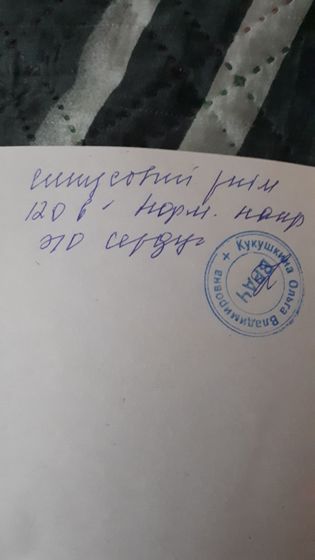 синусовий ритм
120 в ' норм. напр
эю серду
Кукушкина Ольга Владимировна +
ВРАЧ